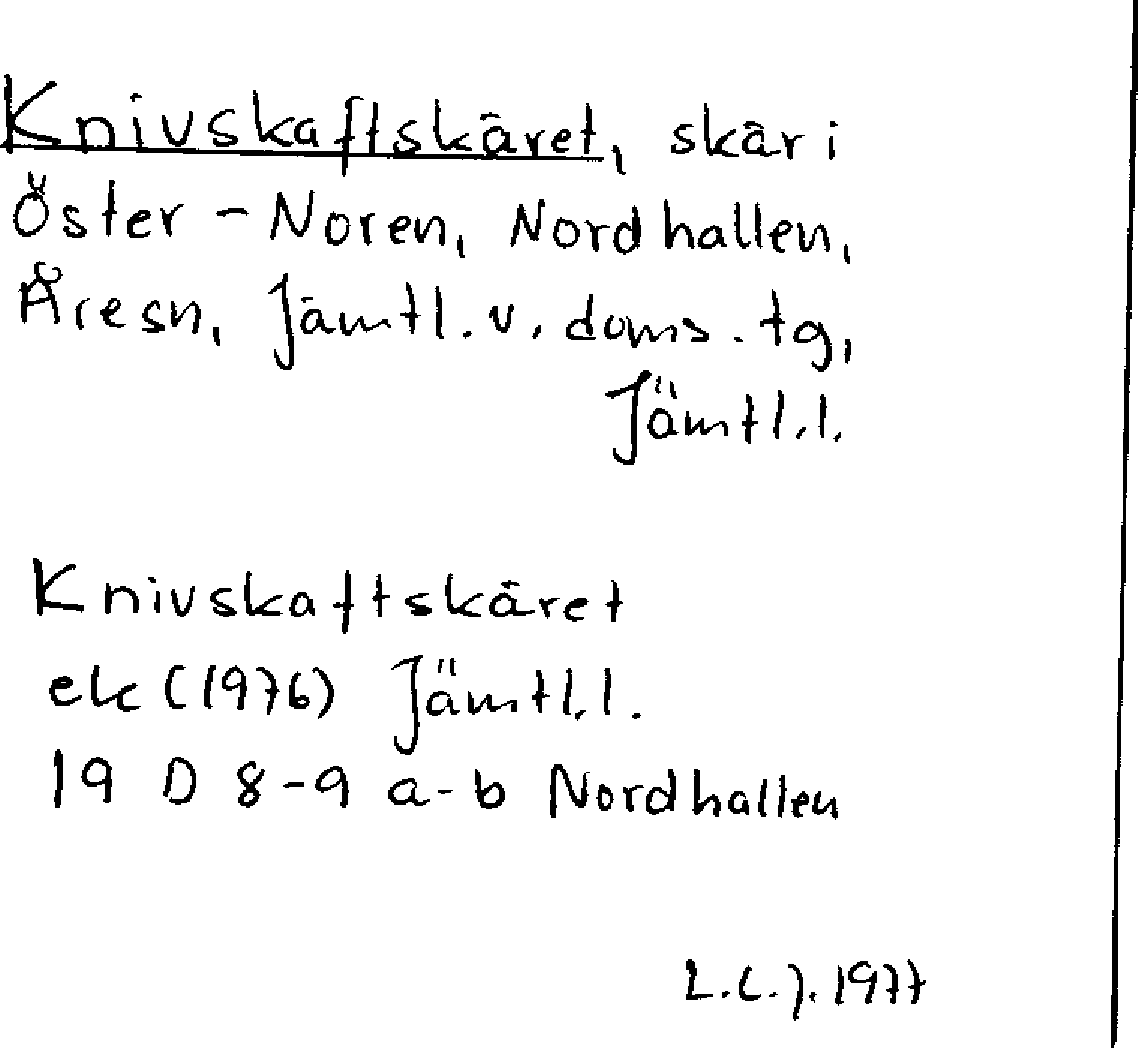 Knivskaftskäret, skär i
Öster-Noren, Nordhallen,
Åresn, Jämtl. v. doms. tg,
Jämtl.l.
Knivskaftskäret
ek (1976) Jämtl.l.
19 D 8-9 a-b Nordhallen
L.C.J. 1977